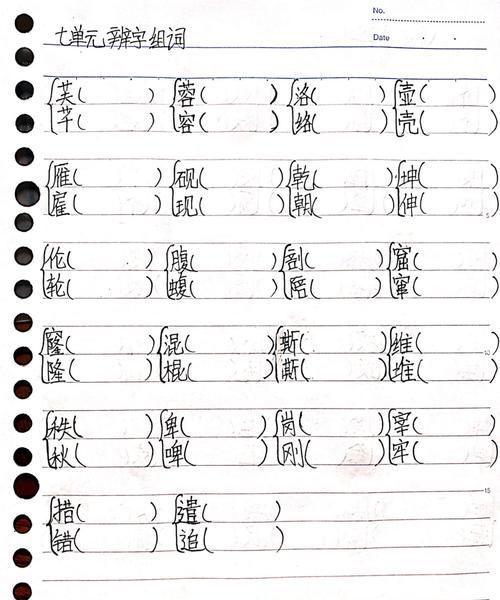 No.
七单元 辨字组词
Date . .
芙( ) 蓉( ) 洛( ) 壶( )
芊( ) 容( ) 络( ) 壳( )
雁( ) 砚( ) 乾( ) 坤( )
雇( ) 现( ) 朝( ) 伸( ) 5
伦( ) 腹( ) 剖( ) 窟( )
轮( ) 蝮( ) 陪( ) 窜( )
窿( ) 混( ) 斯( ) 维( )
隆( ) 棍( ) 斯( ) 堆( )
秩( ) 卑( ) 岗( ) 宰( )
秋( ) 啤( ) 刚( ) 牢( )
措( ) 遣( ) 15
错( ) 追( )